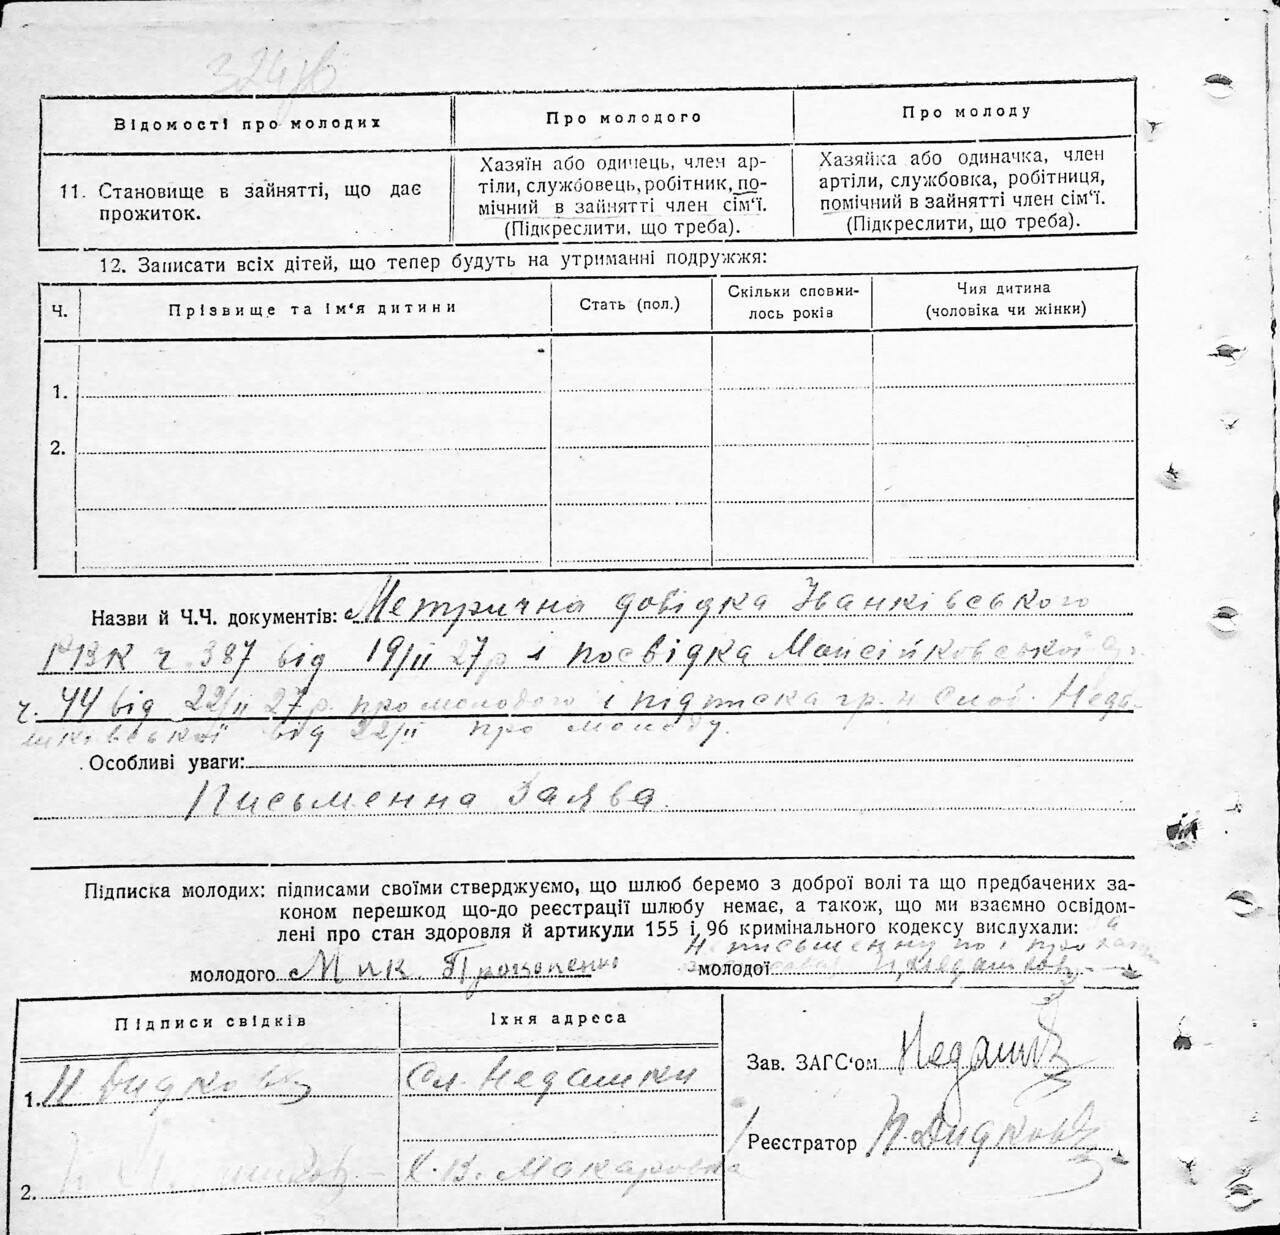 324/в
Відомості про молодих
Про молодого
Про молоду
11. Становище в зайнятті, що дає
прожиток.
Хазяїн або одинець, член ар-
тіли, службовець, робітник, по-
мічний в зайнятті член сім'ї.
(Підкреслити, що треба).
Хазяйка або одиначка, член
артіли, службовка, робітниця,
помічний в зайнятті член сім'ї.
(Підкреслити, що треба).
12. Записати всіх дітей, що тепер будуть на утриманні подружжя:
Ч.
Прізвище та ім'я дитини
Стать (пол.)
Скільки сповни-
лось років
Чия дитина
(чоловіка чи жінки)
1.
2.
Назви й Ч.Ч. документів: Метрична довідка Іванківського
РВК ч. 387 від 19/II 27 р і посвідка Мойсійківської
ч. 44 від 22/II 27 р. про молодого і підписка гр. н Сл. Неда-
шківської від 22/II про молоду.
Особливі уваги:
Письменна Заява.
Підписка молодих: підписами своїми стверджуємо, що шлюб беремо з доброї волі та що предбачених за-
коном перешкод що-до реєстрації шлюбу немає, а також, що ми взаємно освідом-
лені про стан здоровля й артикули 155 і 96 кримінального кодексу вислухали:
Неписьменну по ї прохан
молодого Мик Прокопенко молодої
Підписи свідків
Їхня адреса
1. Н Дидков
Сл. Недашки
2.
Х. В. Макаровка
Зав. ЗАГС'ом Недашк
Реєстратор Н. Дидков